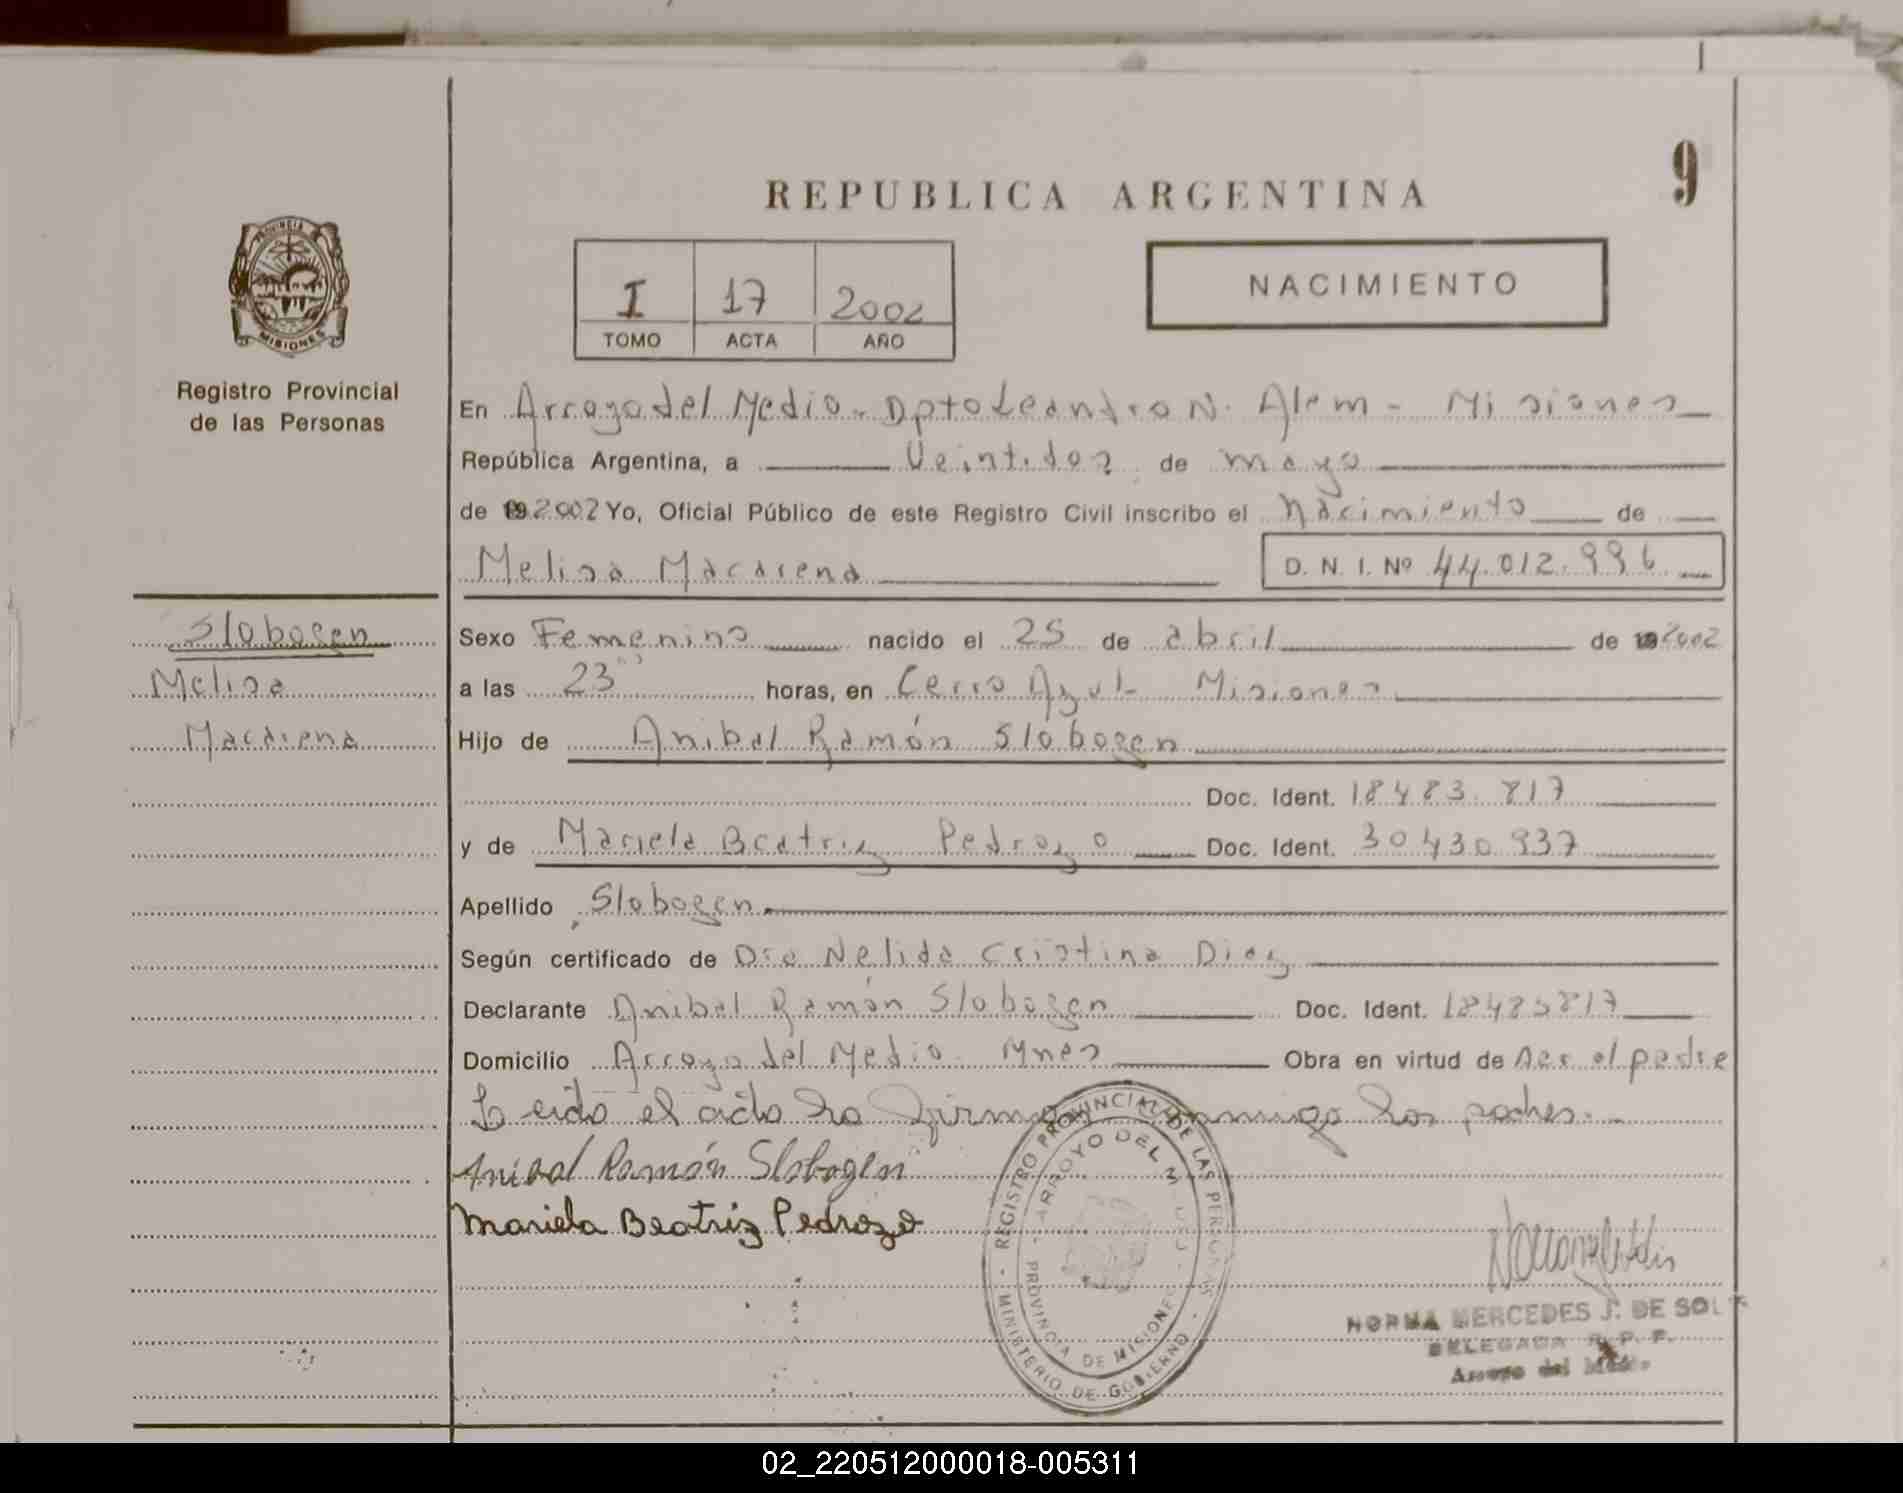 9
REPUBLICA ARGENTINA
PROVINCIA
MISIONES
I 17 2002
TOMO ACTA AÑO
NACIMIENTO
Registro Provincial
de las Personas
En Arroyo del Medio - Dpto Leandro N. Alem - Misiones
República Argentina, a Veintidos de mayo
de 19 2002 Yo, Oficial Público de este Registro Civil inscribo el Nacimiento de
Melisa Macarena D. N. I. Nº 44.012.996
Slobogen
Melisa
Macarena
Sexo Femenino nacido el 25 de abril de 19 2002
a las 23 horas, en Cerro Azul Misiones
Hijo de Anibal Ramón Slobogen
Doc. Ident. 18483.817
y de Mariela Beatriz Pedrozo Doc. Ident. 30430937
Apellido Slobogen
Según certificado de Dra Nelida Cristina Diez
Declarante Anibal Ramón Slobogen Doc. Ident. 18483817
Domicilio Arroyo del Medio - Mnes Obra en virtud de ser el padre
Leida el acta la firman conmigo los padres.-
Anibal Ramón Slobogen
Mariela Beatriz Pedrozo
- REGISTRO PROVINCIAL DE LAS PERSONAS -
MINISTERIO DE GOBIERNO
- ARROYO DEL MEDIO -
PROVINCIA DE MISIONES
NORMA MERCEDES J. DE SOLI
DELEGADA R. P. P.
Arroyo del Medio
02_220512000018-005311